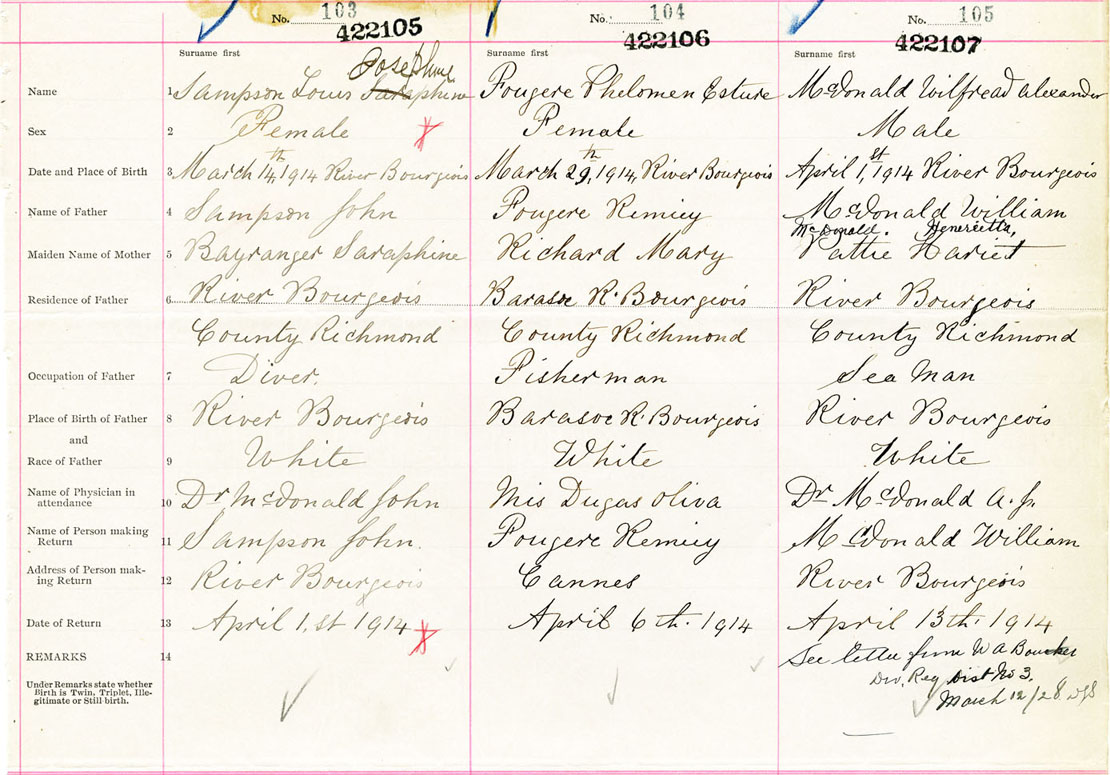 No. 103
422105
No. 104
422106
No. 105
422107
Surname first
Surname first
Surname first
Josephine
Name 1 Sampson Louis Saraphine
Fougere Phelomen Esture
McDonald Wilfread alexander
Sex 2 Female
Female
Male
Date and Place of Birth 3 March 14th, 1914 River Bourgeois
March 29th, 1914, River Bourgeois
April 1st, 1914 River Bourgeois
Name of Father 4 Sampson John
Fougere Remiey
McDonald William
McDonald. Henrietta,
Maiden Name of Mother 5 Bayranger Saraphine
Richard Mary
Pattie Hariet
Residence of Father 6 River Bourgeois
Barasoe R. Bourgeois
River Bourgeois
County Richmond
County Richmond
County Richmond
Occupation of Father 7 Diver.
Fisherman
Sea Man
Place of Birth of Father 8 River Bourgeois
Barasoe R. Bourgeois
River Bourgeois
and
Race of Father 9 White
White
White
Name of Physician in
attendance 10 Dr McDonald John
Mis Dugas Oliva
Dr McDonald A. J.
Name of Person making
Return 11 Sampson John.
Fougere Remiey
McDonald William
Address of Person mak-
ing Return 12 River Bourgeois
Cannes
River Bourgeois
Date of Return 13 April 1.st 1914
April 6th. 1914
April 13th. 1914
REMARKS 14
See letter from W A Boucher
Div. Reg Dist No 3.
March 12/28
Under Remarks state whether
Birth is Twin, Triplet, Ille-
gitimate or Still birth.